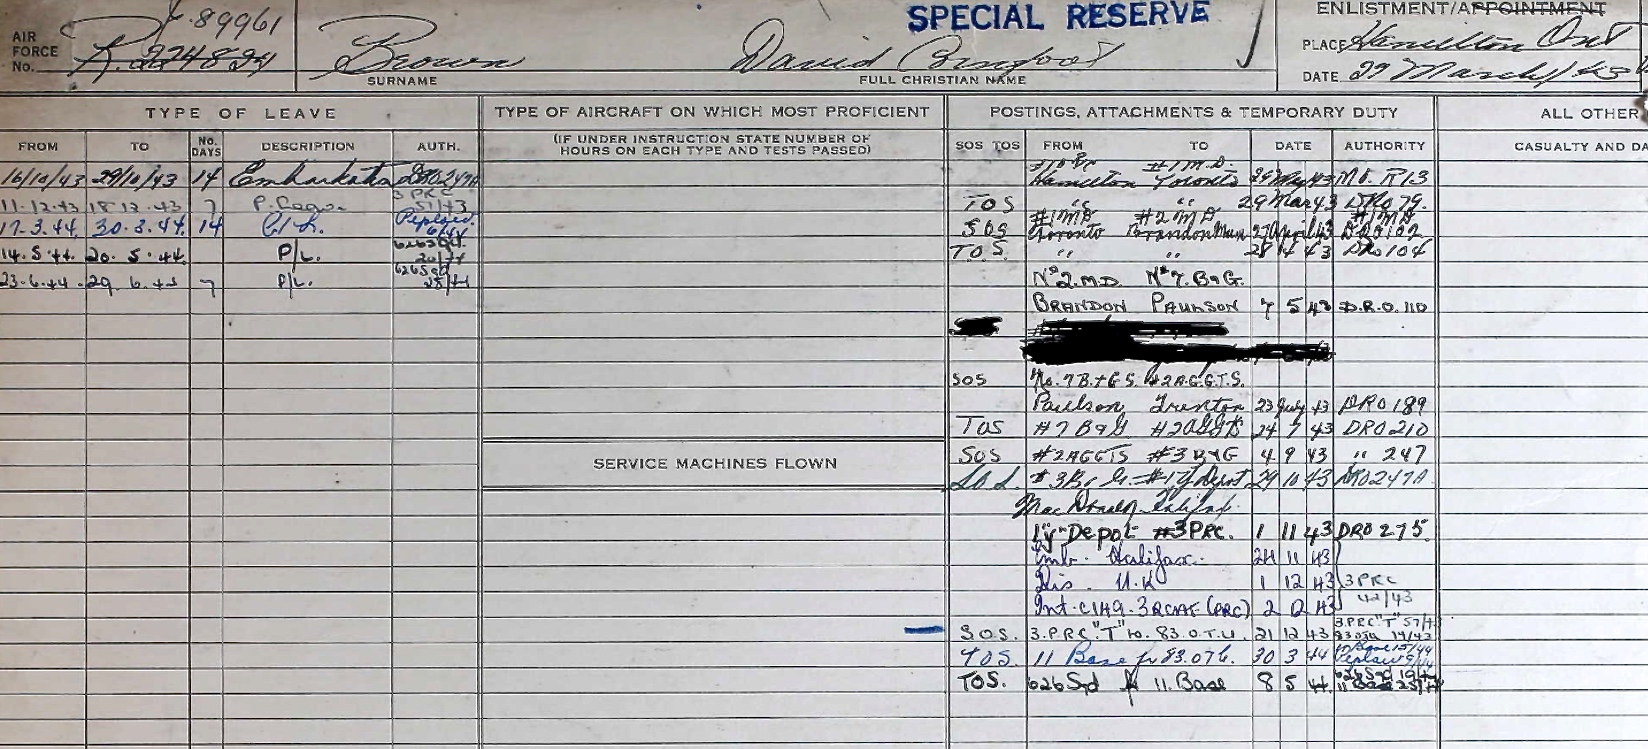 J. 89961
SPECIAL RESERVE
ENLISTMENT/APPOINTMENT
AIR FORCE No. R.224824
Brown
David
PLACE Hamilton Ont
SURNAME
FULL CHRISTIAN NAME
DATE 29 March/43
TYPE OF LEAVE
TYPE OF AIRCRAFT ON WHICH MOST PROFICIENT
POSTINGS, ATTACHMENTS & TEMPORARY DUTY
ALL OTHER
FROM TO No. DAYS DESCRIPTION AUTH.
(IF UNDER INSTRUCTION STATE NUMBER OF
HOURS ON EACH TYPE AND TESTS PASSED)
SOS TOS FROM TO DATE AUTHORITY
CASUALTY AND DA
16/10/43 29/10/43 14 Embarkation DRO247A
3 PRC
11-12-43 18-12-43 7 51/43
17-3.44. 30-3.44. 14 P/L.
14.5.44. 20.5.44. P/L. 626 Sqd.
23.6.44 - 29.6.44 7 P/L. 626 Sqd
#1 M.D.
Hamilton Toronto 29 Mar 43 R13
TOS " " 29 Mar 43 DRO 79.
#1 MD #2 MD #1 MD
SOS Toronto Brandon Man 27 April 43 DRO 102
TOS. " " 28 4 43 DRO 104
No 2. M.D. No 7. B&G.
BRANDON PAULSON 7 5 43 D.R.O. 110
SOS No. 7 B.+G S. #2 A.G.G.T.S.
Paulson Trenton 23 July 43 DRO 189
TOS #7 B&G #2 AGGTS 24 7 43 DRO 210
SOS #2 AGGTS #3 B&G 4 9 43 " 247
SERVICE MACHINES FLOWN
S.O.S. #3 B. & G. #1 Y Depot 29 10 43 DRO 247A
MacDonald Halifax
1 "Y" Depot #3 PRC. 1 11 43 DRO 275.
Emb. Halifax. 24 11 43
Dis. U.K 1 12 43 3 PRC
Int. C1H9. 3 RCAF (PRC) 2 12 43 42/43
S.O.S. 3. P.R.C. "T" to. 83. O.T.U. 21 12 43 3.PRC "T" 57/43
TOS. 11 Base fr 83. OTU. 30 3 44
TOS. 626 Sqd fr 11. Base 8 5 44